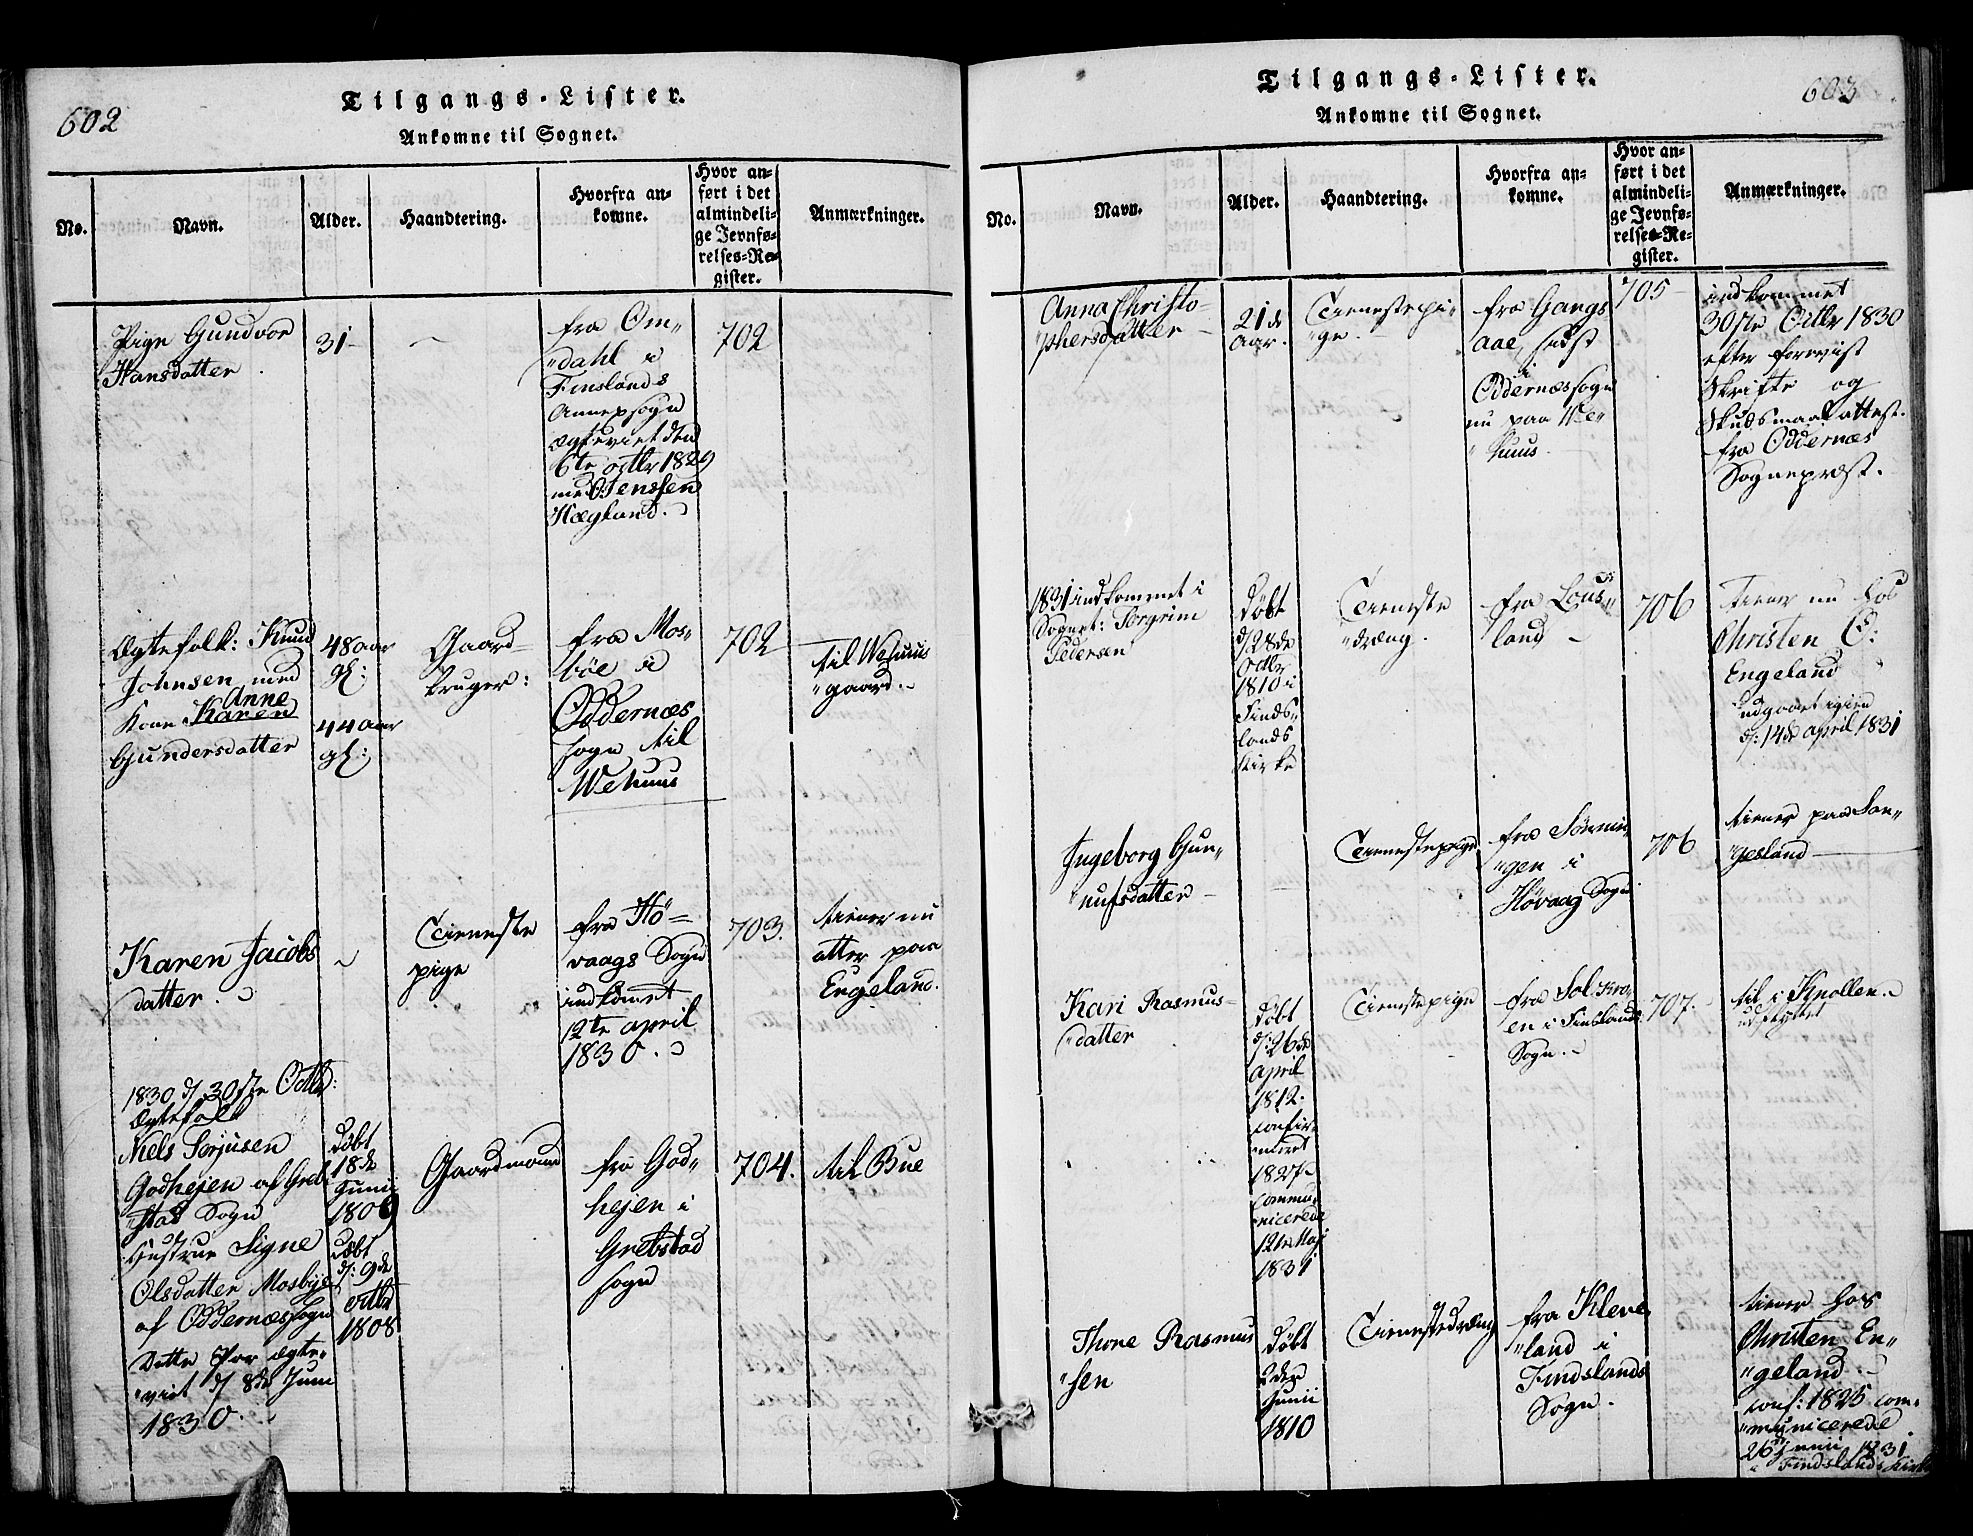 602
Tilgangs-Lister.
Ankomne til Sognet.
No.
Navn.
Alder.
Haandtering.
Hvorfra an-
komne.
Hvor an-
ført i det
almindeli-
ge Jevnfø-
relses-Re-
gister.
Anmærkninger.
Pige Gundvor
Hansdatter
31
fra Om-
dahl i
Finslands
Annexsogn
ægteviet den
6te octbr 1829
med O Jenssen
Hægland.
702
Ægtefolk: Knud
Johnsen med
Kone Karen
Anne
Gundersdatter
48 aar
gl:
44 aar
gl:
Gaard-
bruger:
fra Mos-
bøe i
Oddernæs
sogn til
Wehuus
702
til Wehuus
gaard.
Karen Jacobs
datter.
Tieneste
pige
fra Hø=
vaags Sogn
indkomet
12te april
1830.
703.
tiener nu
atter paa
Engeland.
1830 d/ 30ste Octbr:
Ægtefolk
Niels Terjusen
Godhejen af Greb-
stad Sogn
Hustrue Signe
Olsdatter Mosbye
af Oddernæs sogn
Dette Par ægte-
viet d/ 8de Juni
1830.
Døbt
18de
Junii
1806
Døbt
d/: 9de
octbr
1808
Gaardmand
fra God-
hejen i
Grebstad
sogn
704.
til Bue
603
Tilgangs-Lister.
Ankomne til Sognet.
No.
Navn.
Alder.
Haandtering.
Hvorfra an-
komne.
Hvor an-
ført i det
almindeli-
ge Jevnfø-
relses-Re-
gister.
Anmærkninger.
Anna Christo-
phersdatter
21de
aar.
Tienestepi-
ge.
fra Gangs
aae, sidst
i
Oddernæs sogn
nu paa We-
huus
705
indkommet
30ste Octbr 1830
efter forevist
Skrifte og
Skudsmaal attest.
fra Oddernæs
Sognepræst.
1831 indkommet i
Sognet: Torgrim
Pedersen
Døbt
d/28de
Octbr
1810 i
Finds-
lands
Kirke
Tieneste
dræng.
fra Lous-
land
706
tiener nu hos
Christen O:
Engeland
udgaaet igien
d/: 14de april 1831
Ingeborg Gun-
nufsdatter
Tienestepige
fra Tømmin-
gen i
Høvaag Sogn
706
tiener paa Lon-
gesland
Kari Rasmus-
datter
Døbt
d/: 26de
april
1812.
confir-
meret
1827.
commu-
nicerede
12te Maj
1831
Tienestepige
fra Sol Kro-
en i Finslands
Sogn.
707.
til i Knollen.
udflyttet
Thore Rasmus
sen
Døbt
2den
Junii
1810
Tienestedræng
fra Kleve
land i
Findslands
Sogn.
tiener hos
Christen En-
geland.
conf: 1825 com-
municerede
26 Junii 1831 i
Findslands Kirke